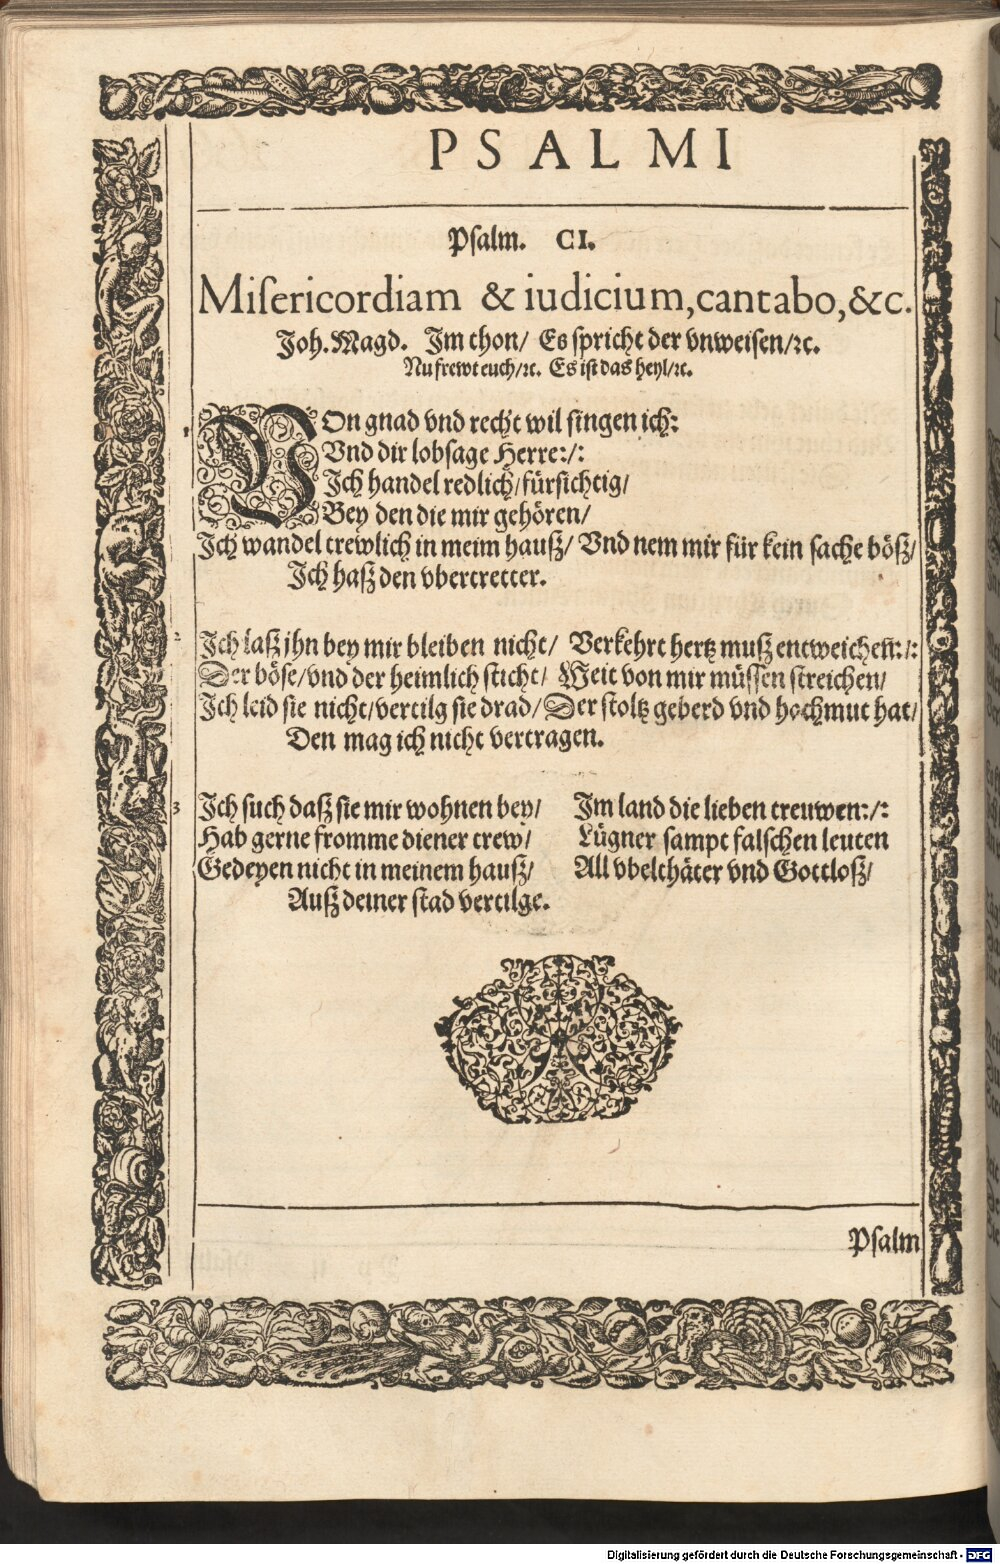 PSALMI
Psalm. CI.
Miſericordiam & iudicium, cantabo, &c.
Joh. Magd. Im thon/ Es spricht der vnweisen/ꝛc.
Nu frewt euch/ꝛc. Es ist das heyl/ꝛc.
1 VOn gnad vnd recht wil singen ich:
Vnd dir lobsage Herre:/:
Ich handel redlich/fürsichtig/
Bey den die mir gehören/
Ich wandel trewlich in meim hauß/ Vnd nem mir für kein sache böß/
Ich haß den vbertretter.
2 Ich laß jhn bey mir bleiben nicht/ Verkehrt hertz muß entweichen:/:
Der böse/vnd der heimlich sticht/ Weit von mir müssen streichen/
Ich leid sie nicht/vertilg sie drad/ Der stoltz geberd vnd hochmut hat/
Den mag ich nicht vertragen.
3 Ich such daß sie mir wohnen bey/ Im land die lieben treuwen:/:
Hab gerne fromme diener trew/ Lügner sampt falschen leuten
Gedeyen nicht in meinem hauß/ All vbelthäter vnd Gottloß/
Auß deiner stad vertilge.
Psalm
Digitalisierung gefördert durch die Deutsche Forschungsgemeinschaft - DFG